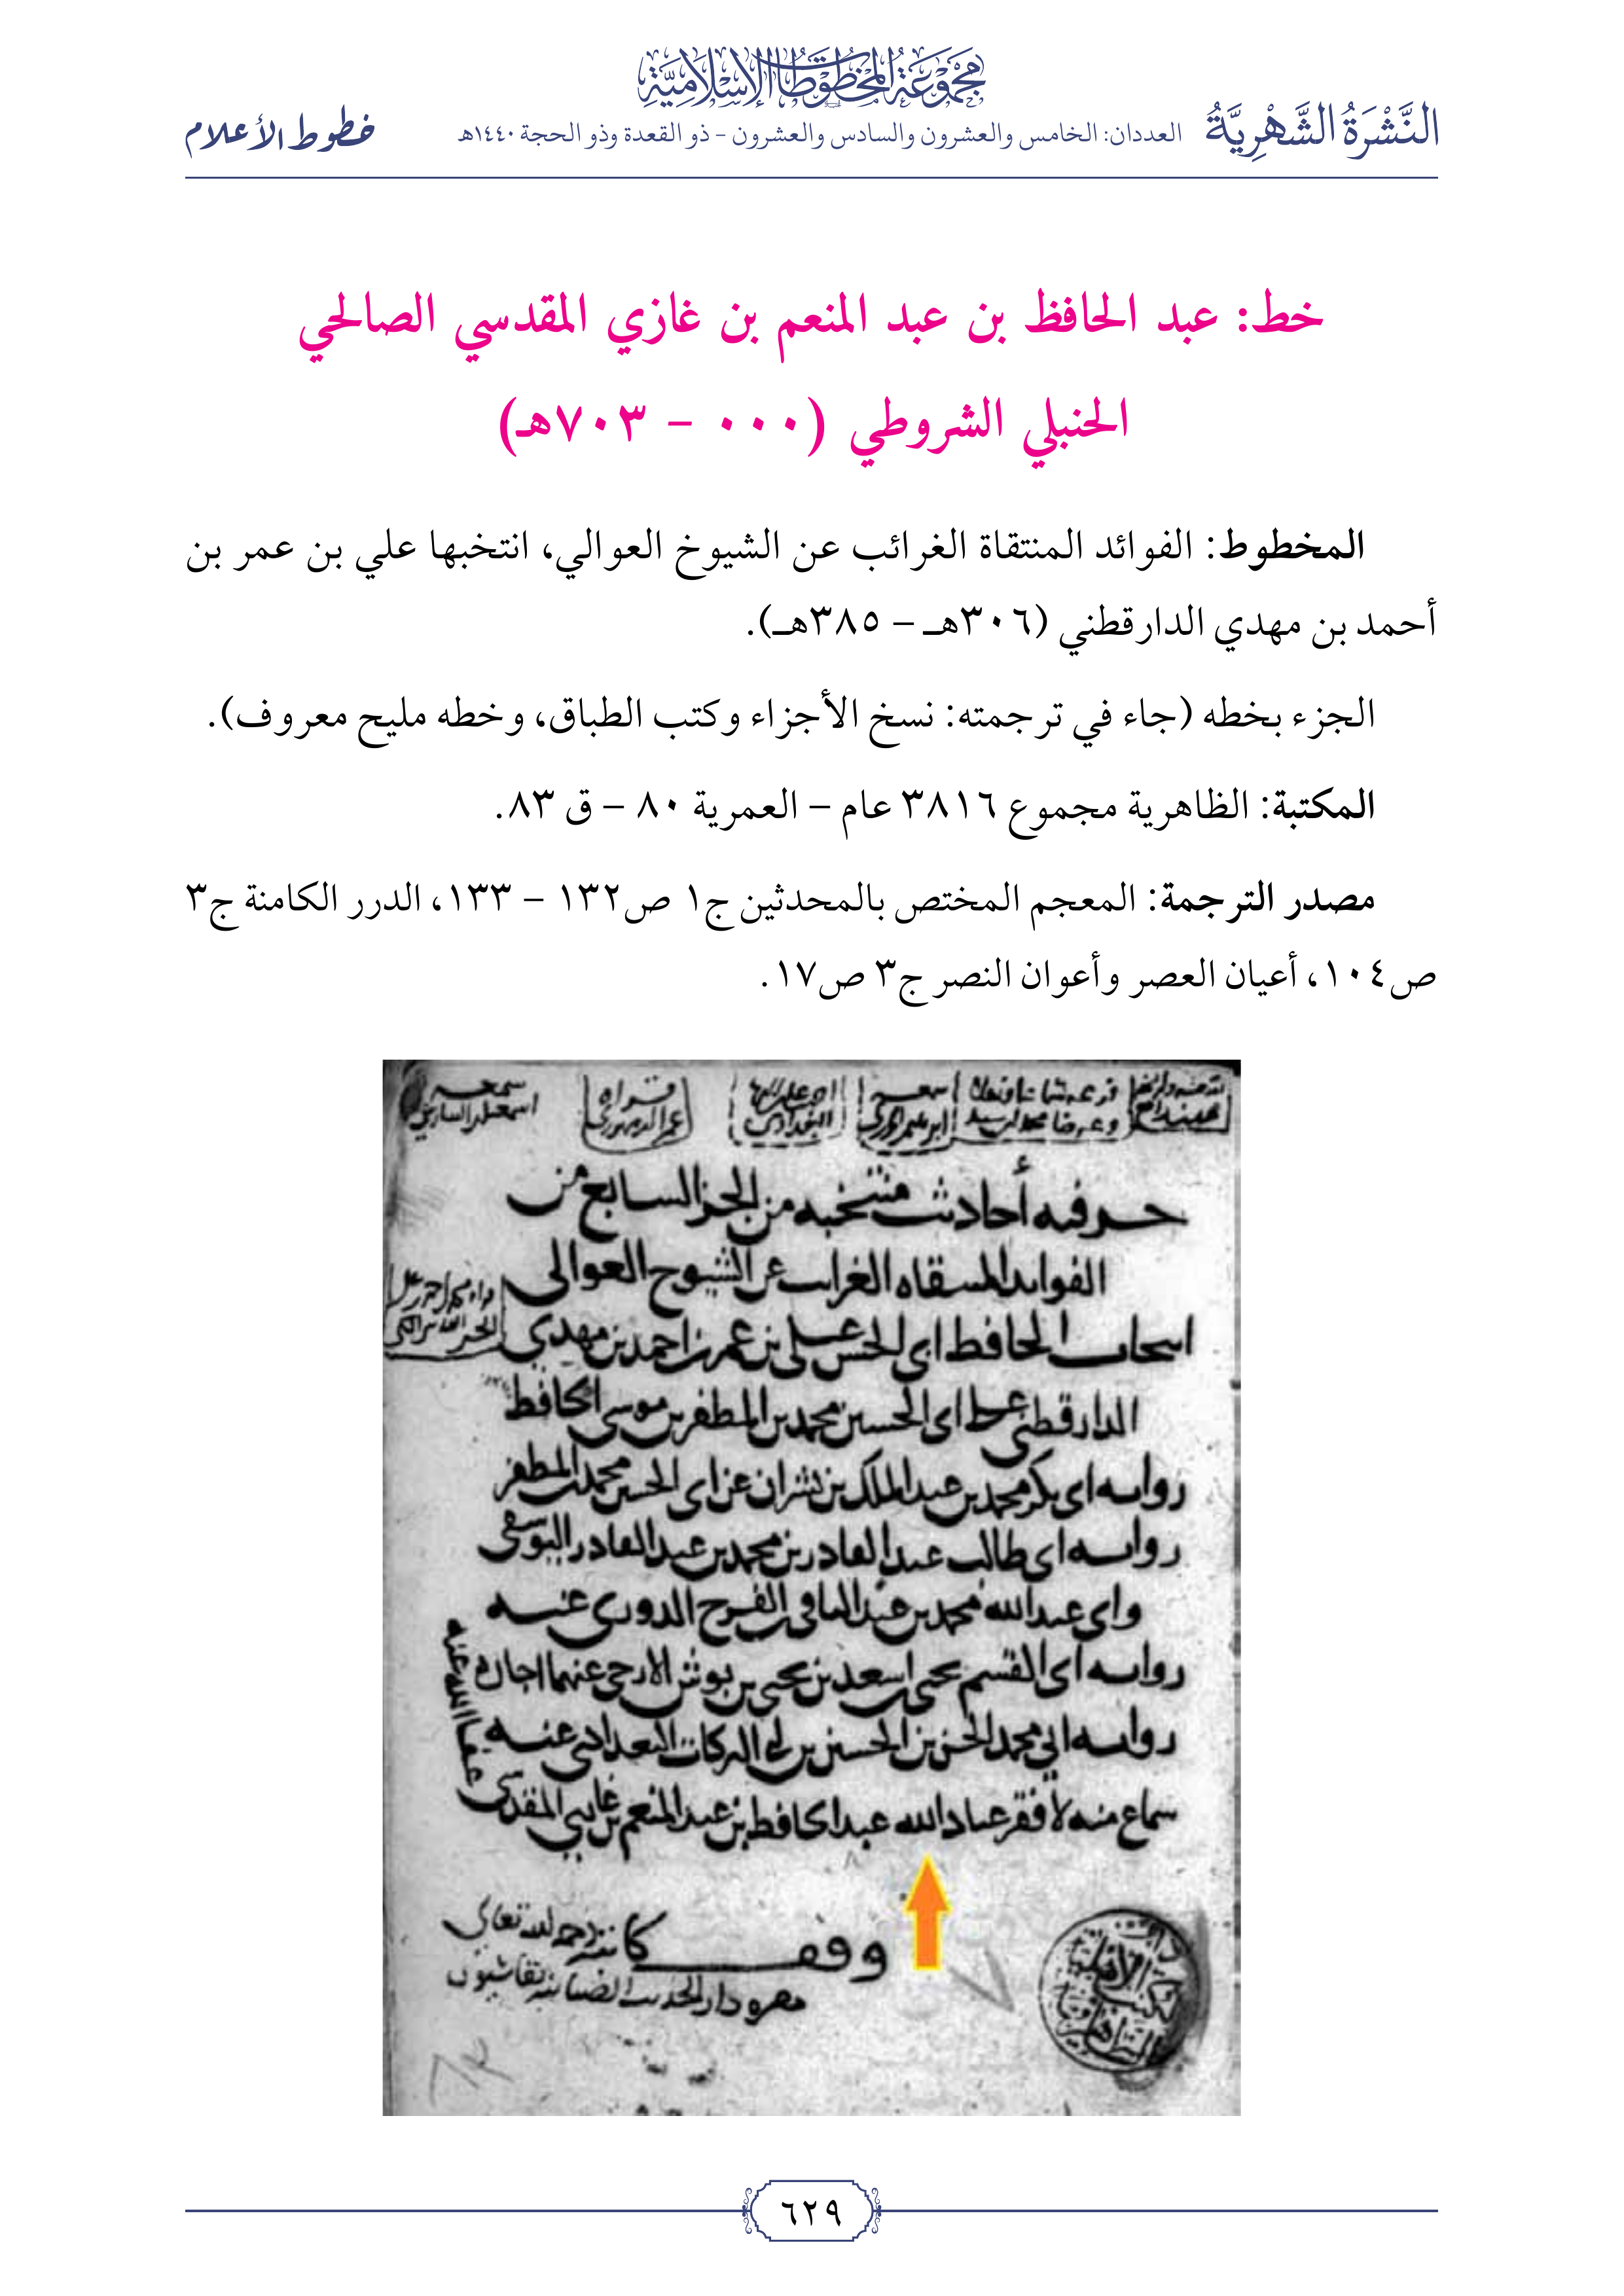 مجموعة المخطوطات الإسلامية
النَّشْرَةُ الشَّهْرِيَّةُ العددان: الخامس والعشرون والسادس والعشرون - ذو القعدة وذو الحجة ١٤٤٠هـ خطوط الأعلام
خط: عبد الحافظ بن عبد المنعم بن غازي المقدسي الصالحي
الحنبلي الشروطي (٠٠٠ - ٧٠٣هـ)
المخطوط: الفوائد المنتقاة الغرائب عن الشيوخ العوالي، انتخبها علي بن عمر بن
أحمد بن مهدي الدارقطني (٣٠٦هـ – ٣٨٥هـ).
الجزء بخطه (جاء في ترجمته: نسخ الأجزاء وكتب الطباق، وخطه مليح معروف).
المكتبة: الظاهرية مجموع ٣٨١٦ عام – العمرية ٨٠ – ق ٨٣.
مصدر الترجمة: المعجم المختص بالمحدثين ج١ ص١٣٢ – ١٣٣، الدرر الكامنة ج٣
ص١٠٤، أعيان العصر وأعوان النصر ج٣ ص١٧.
فيه أحاديث منتخبه من الجز السابع من
الفوايد المنتقاه الغرايب عن الشيوخ العوالى
انتخاب الحافظ ابى الحسن على بن عمر بن احمد بن مهدي
الدارقطنى على ابى الحسين محمد بن المظفر بن موسى الحافظ
روايه ابى بكر محمد بن عبد الملك بن بشران عن ابى الحسين محمد بن المظفر
روايه ابى طالب عبد القادر بن محمد بن عبد القادر اليوسفى
وابى عبد الله محمد بن عبد الباقى بن الفرج الدورى عنه
روايه ابى القسم يحيى بن اسعد بن يحيى بن بوش الازجى عنهما اجازه
روايه ابي محمد الحسن بن الحسين بن ابي البركات البغدادى عنه
سماع منه لافقر عباد الله عبد الحافظ بن عبد المنعم بن غازي المقدسى
عفا الله عنه
وقف كاتبه رحمه الله تعالى
مقره دار الحديث الضيائيه بقاسيون
٦٢٩